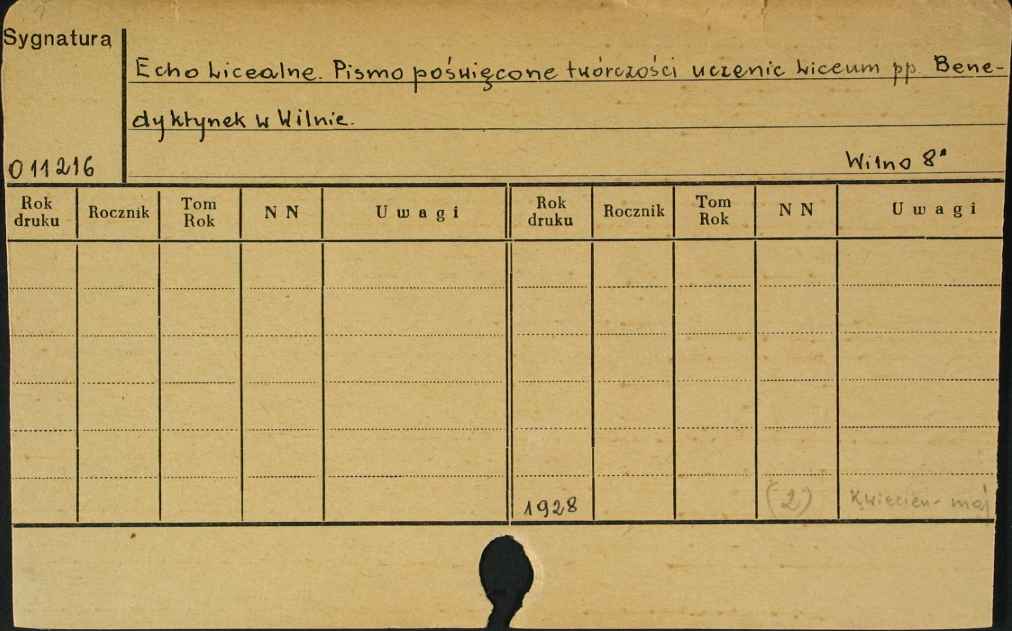 Sygnatura
Echo Licealne. Pismo poświęcone twórczości uczenic Liceum pp. Bene-
dyktynek w Wilnie.
011216
Wilno 8°
Rok druku Rocznik Tom Rok N N Uwagi Rok druku Rocznik Tom Rok N N Uwagi
1928 (2) Kwiecień - maj